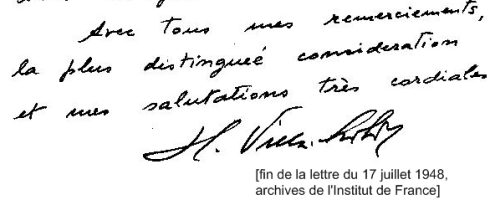 Avec tous mes remerciements,
la plus distingueé consideration
et mes salutations très cordiales
H. Villa-Lobos
[fin de la lettre du 17 juillet 1948,
archives de l'Institut de France]